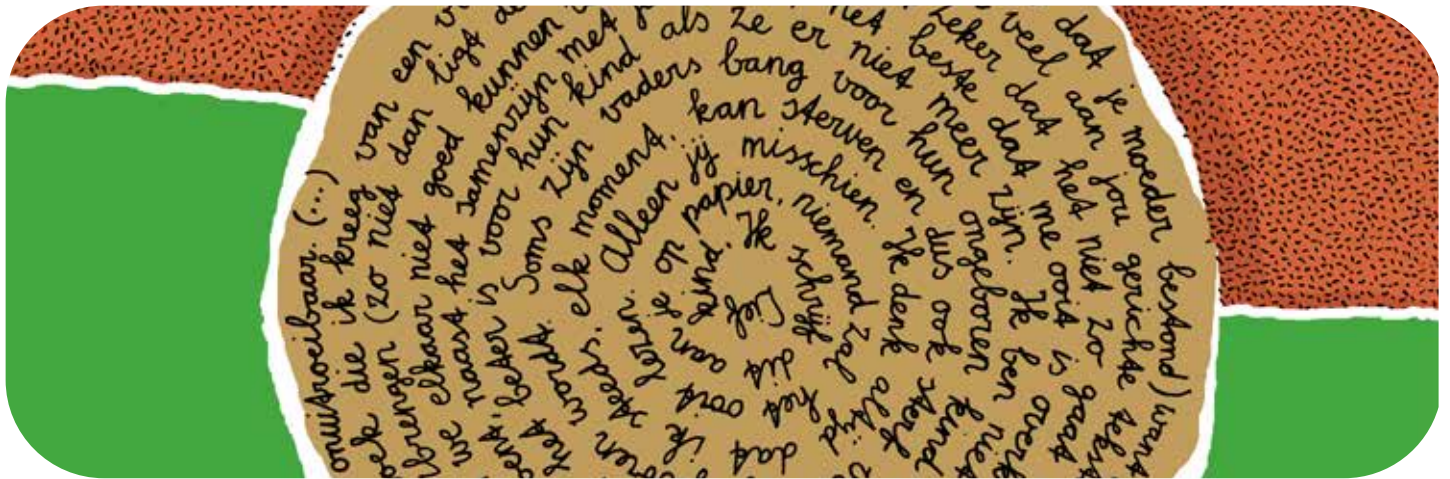 Lief kind. Ik schrijf dit
aan je op papier, niemand zal het ooit
lezen. Alleen jij misschien. Ik denk altijd dat ik
steeds, elk moment, kan sterven en dus ook sterf
het wordt. Soms zijn vaders bang voor hun ongeboren kind
beter is voor hun kind als ze er niet meer zijn. Ik ben niet
naast het samenzijn met
het beste dat me ooit is
we elkaar niet goed kunnen
zeker dat het niet zo gaat
(zo niet dan ligt
veel aan jou gerichte
die ik kreeg van een
dat je moeder bestond) want
onuitroeibaar. (...)